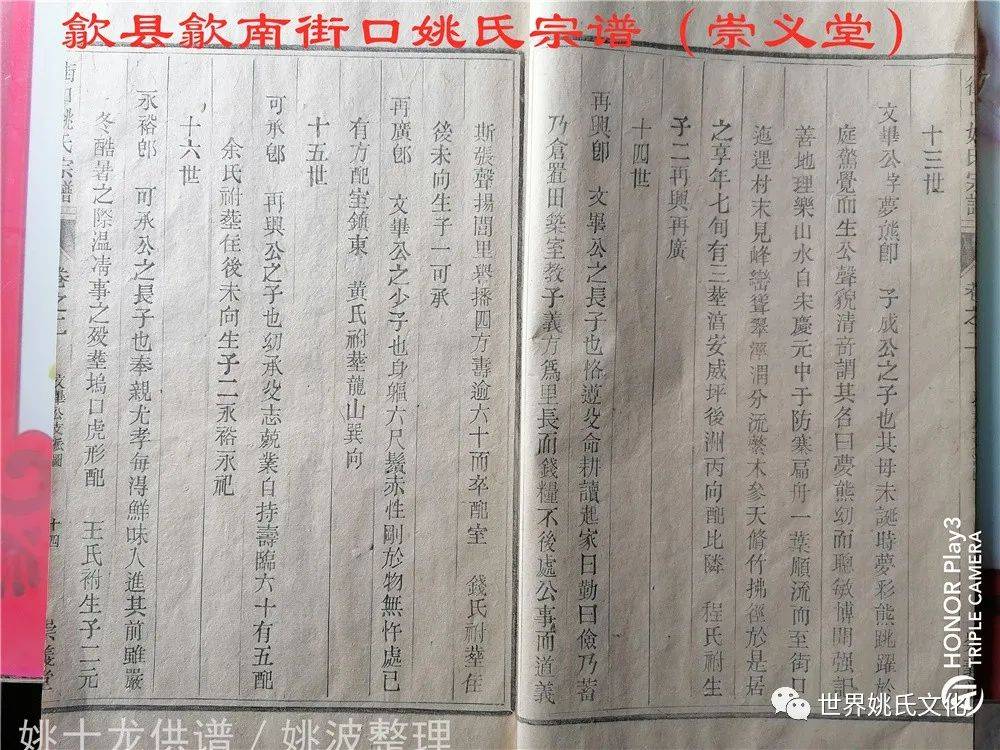 歙县歙南街口姚氏宗谱（崇义堂）
十三世
文畢公字夢熊卽　子成公之子也其母未誕時夢彩熊跳躍於
庭驚覺而生公聲貌清奇謂其名曰夢熊幼而聰敏博聞强記
善地理樂山水自宋慶元中于防寨扁舟一葉順流而至街口
迤浬村末見峰巒聳翠涇渭分流繁木參天脩竹拂徑於是居
之享年七旬有三塟湻安威坪後洲丙向配比隣　程氏祔生
子二再興再廣
十四世
再興卽　文畢公之長子也恪遵父命耕讀起家曰勤曰儉乃蓄
乃倉置田築室教子義方爲里長而錢糧不後處公事而道義
斯張聲揚閭里譽播四方壽逾六十而卒配室　錢氏祔塟住
後未向生子一可承
再廣卽　文畢公之少子也身軀六尺鬚赤性剛於物無忤處已
有方配室鎮東　黄氏祔塟龍山巽向
十五世
可承卽　再興公之子也幼承父志兢業自持壽臨六十有五配
余氏祔塟住後未向生子二永裕永祀
十六世
永裕卽　可承公之長子也奉親尤孝每淂鮮味入進其前雖嚴
冬酷暑之際温凊事之殁塟塢口虎形配　王氏祔生子二元
街口姚氏宗譜
卷之二
文畢公支派圖
十四
崇義堂
HONOR Play3
TRIPLE CAMERA
世界姚氏文化
姚十龙供谱 / 姚波整理